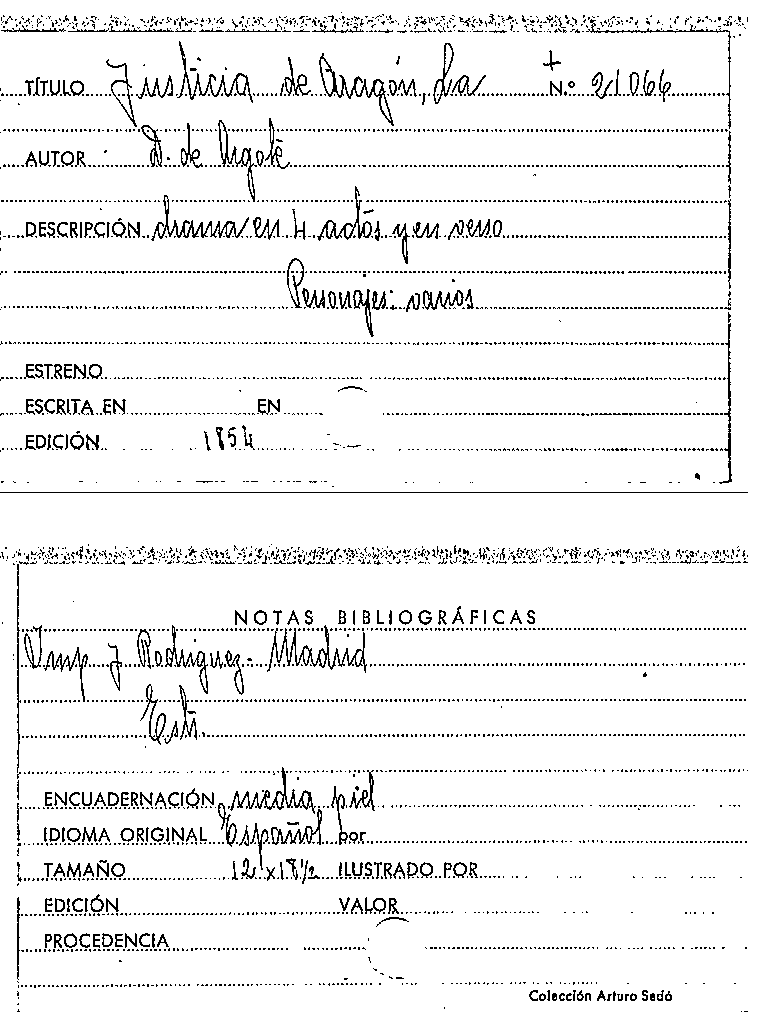 TÍTULO Justicia de Aragón, La + N.º 21066
AUTOR D. de Argote
DESCRIPCIÓN drama en 4 actos y en verso
Personajes: varios
ESTRENO
ESCRITA EN EN
EDICIÓN 1854
NOTAS BIBLIOGRÁFICAS
Imp J Rodriguez- Madrid
ENCUADERNACIÓN media piel
IDIOMA ORIGINAL Español por
TAMAÑO 12 x 18 1/2 ILUSTRADO POR
EDICIÓN VALOR
PROCEDENCIA
Colección Arturo Sedó